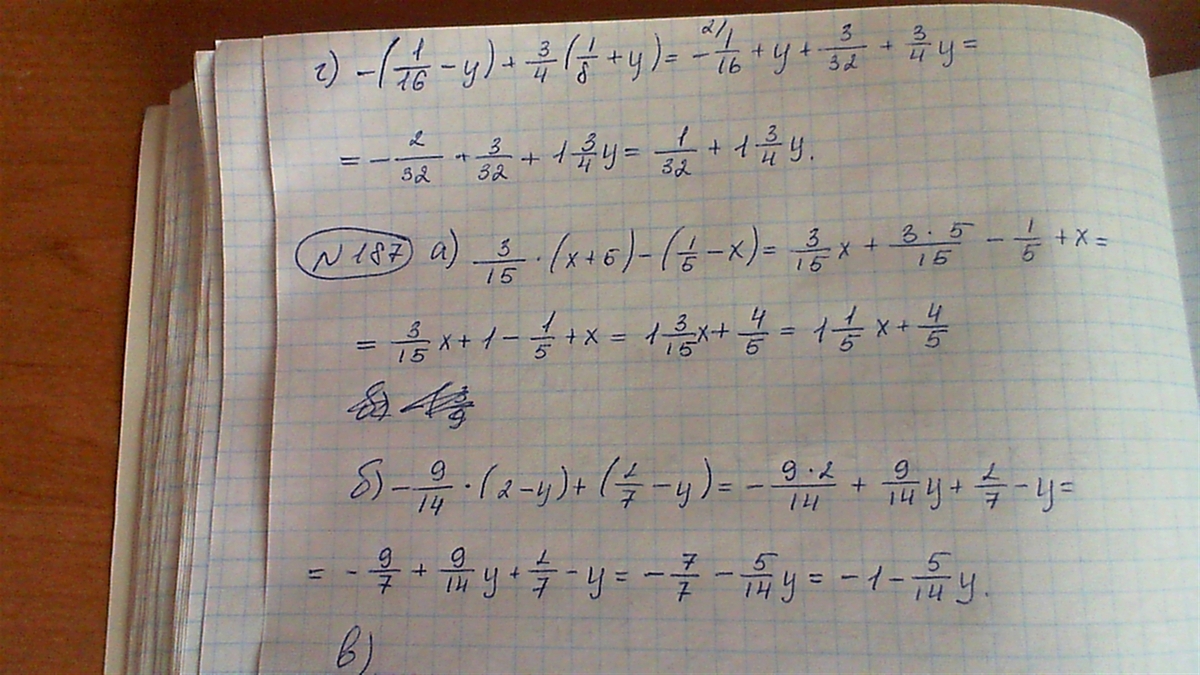 г) -(1/16 - y) + 3/4 (1/8 + y) = - 1/16 + y + 3/32 + 3/4 y =
= - 2/32 + 3/32 + 1 3/4 y = 1/32 + 1 3/4 y.
N 187 а) 3/15 · (x+5) - (1/5 - x) = 3/15 x + 3·5/15 - 1/5 + x =
= 3/15 x + 1 - 1/5 + x = 1 3/15 x + 4/5 = 1 1/5 x + 4/5
б) - 9/14 · (2-y) + (2/7 - y) = - 9·2/14 + 9/14 y + 2/7 - y =
= - 9/7 + 9/14 y + 2/7 - y = - 7/7 - 5/14 y = -1 - 5/14 y.
в)